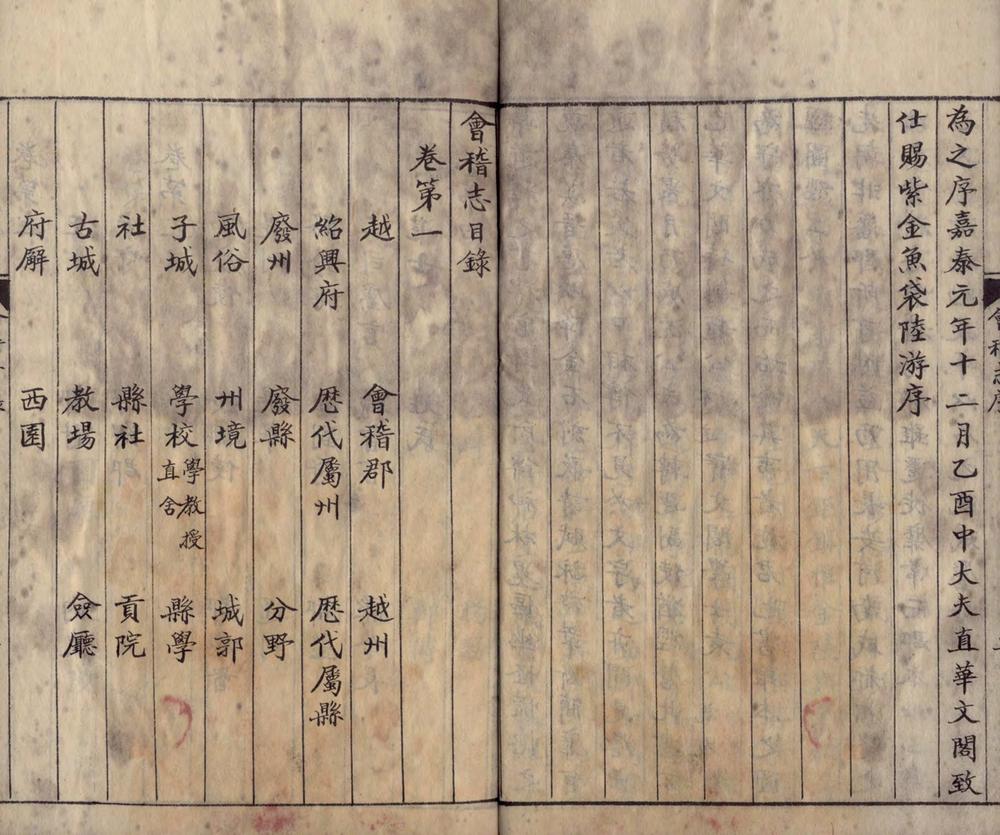 為之序嘉泰元年十二月乙酉中大夫直華文閣致
仕賜紫金魚袋陸游序
會稽志目錄
卷第一
越 會稽郡 越州
紹興府 歷代屬州 歷代屬縣
廢州 廢縣 分野
風俗 州境 城郭
子城 學校 學教授直舍 縣學
社 縣社 貢院
古城 教場 僉廳
府廨 西園